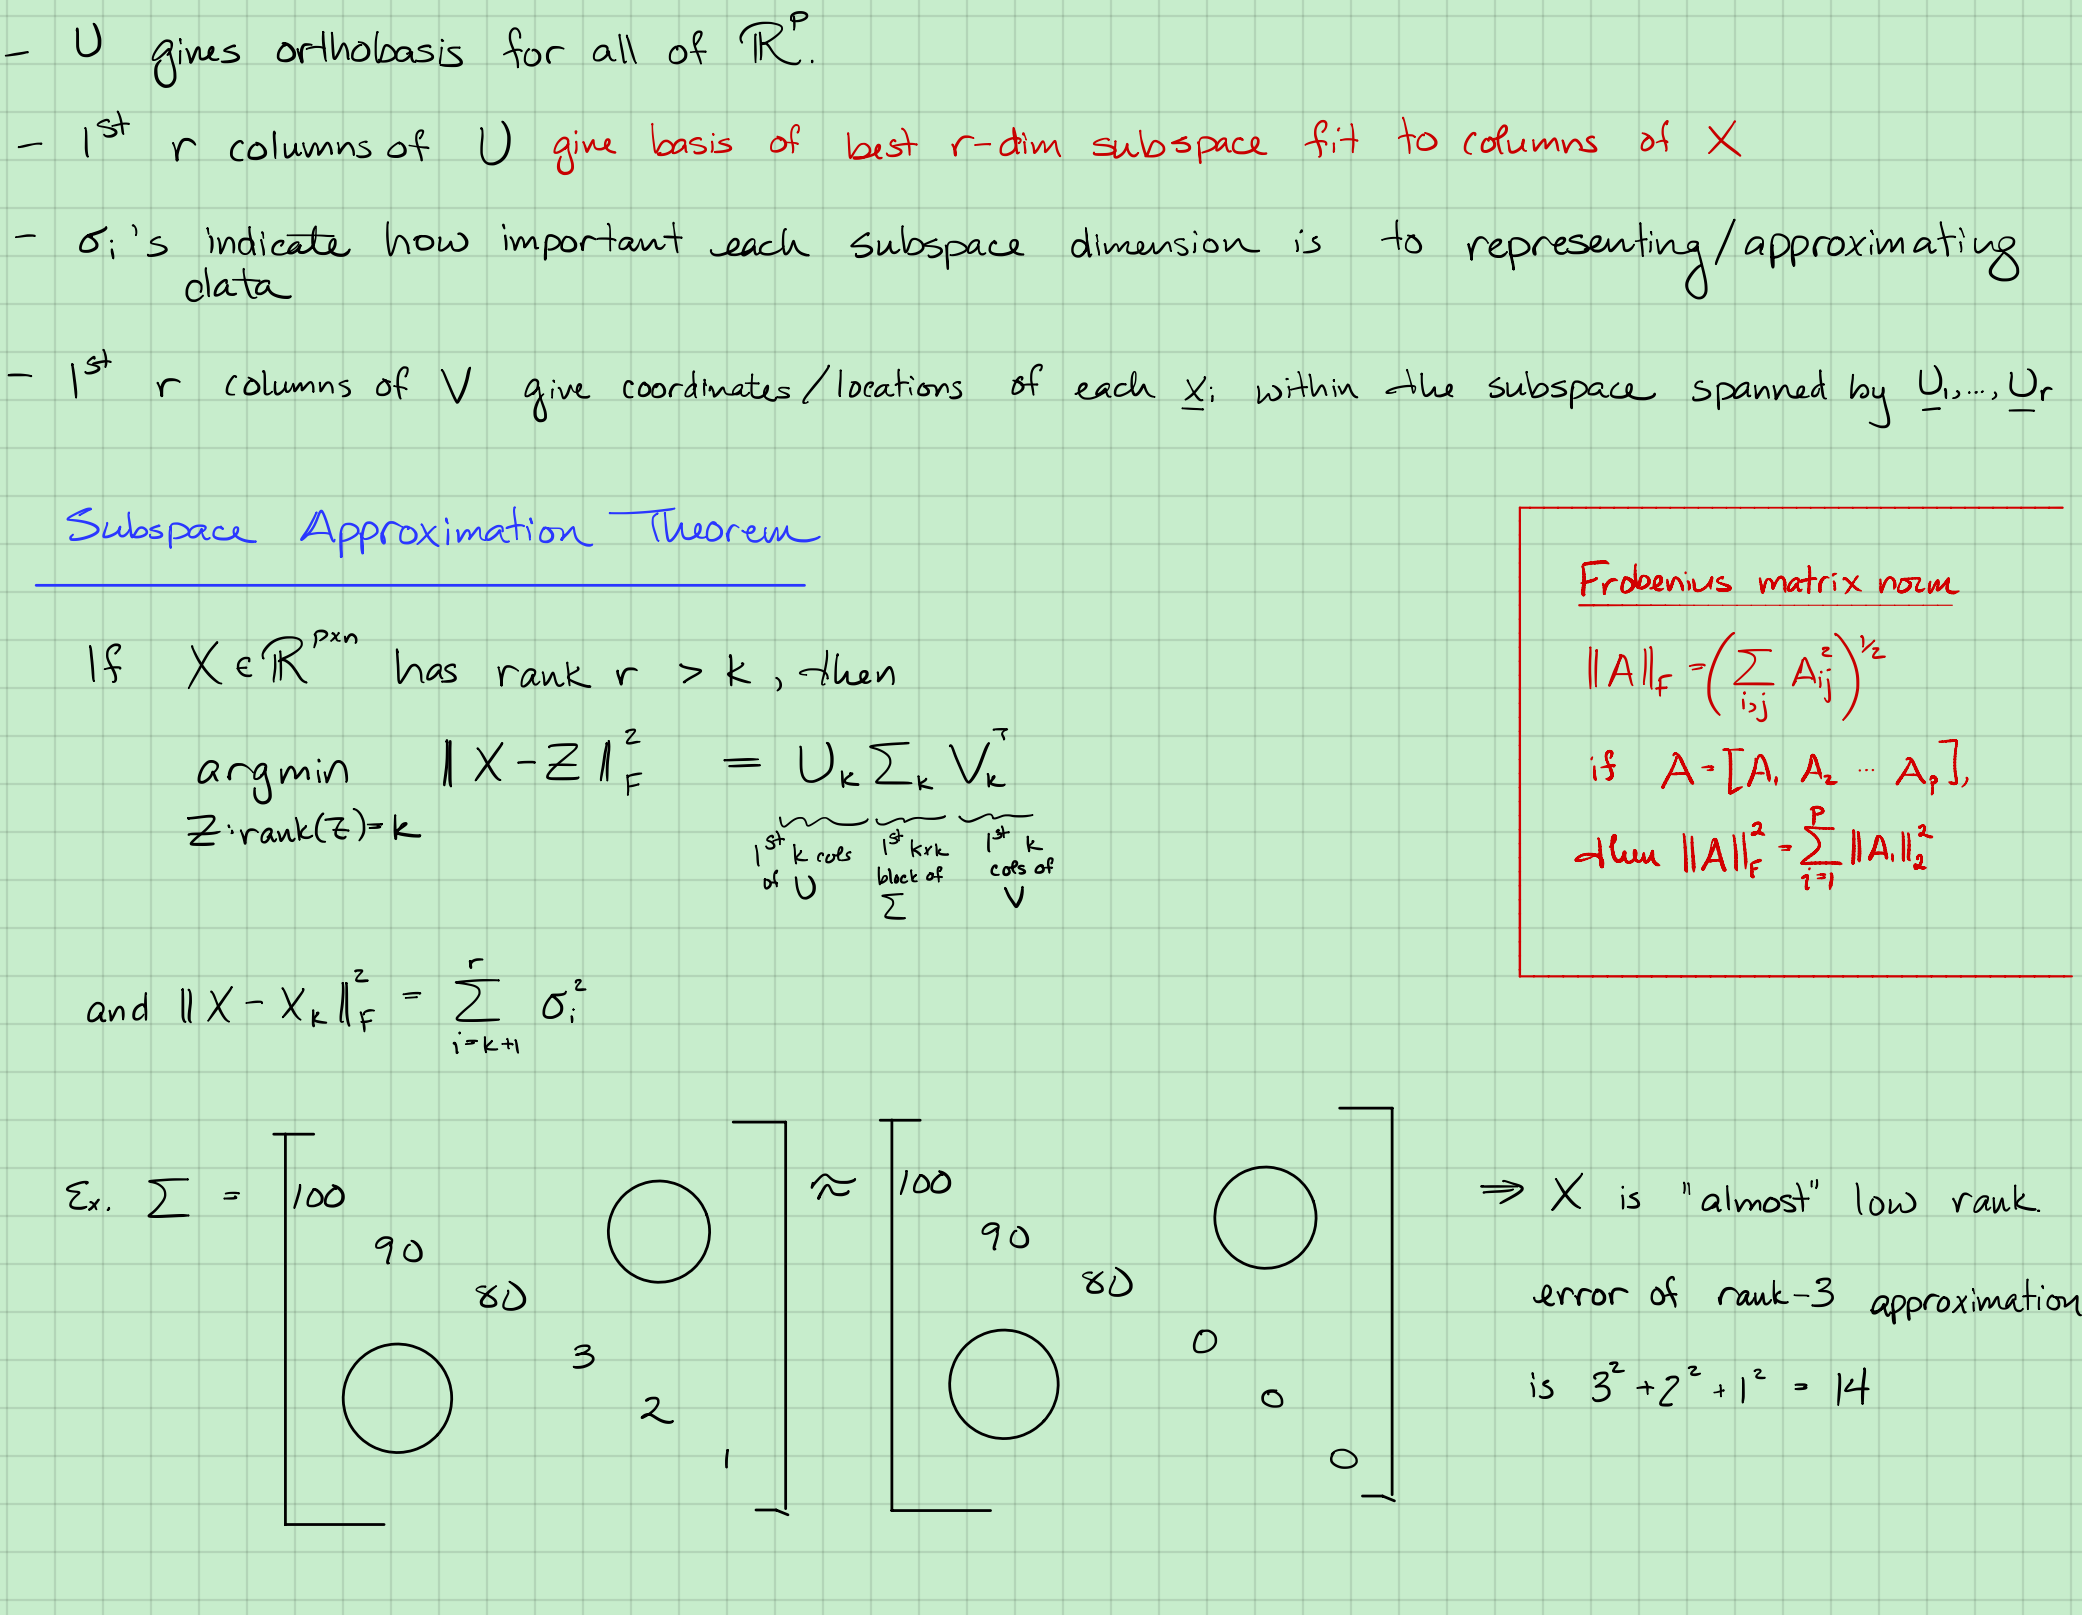 - U gives orthobasis for all of ℝᵖ.
- 1ˢᵗ r columns of U give basis of best r-dim subspace fit to columns of X
- σᵢ's indicate how important each subspace dimension is to representing/approximating
data
- 1ˢᵗ r columns of V give coordinates/locations of each x̲ᵢ within the subspace spanned by U̲₁,..., U̲ᵣ
Subspace Approximation Theorem
If X ∈ ℝᵖˣⁿ has rank r > k, then
argmin ‖X-Z‖²_F = U_k Σ_k V_kᵀ
Z:rank(Z)=k
1ˢᵗ k cols of U
1ˢᵗ k×k block of Σ
1ˢᵗ k cols of V
and ‖X - X_k‖²_F = Σ_{i=k+1}^{r} σᵢ²
Frobenius matrix norm
‖A‖_F = (Σ_{i,j} A²_{ij})^{1/2}
if A = [A₁ A₂ ... A_p],
then ‖A‖²_F = Σ_{i=1}^{p} ‖A₁‖²₂
Ex. Σ = [100 90 80 3 2 1] ≈ [100 90 80 0 0 0] ⇒ X is "almost" low rank.
error of rank-3 approximation
is 3² + 2² + 1² = 14